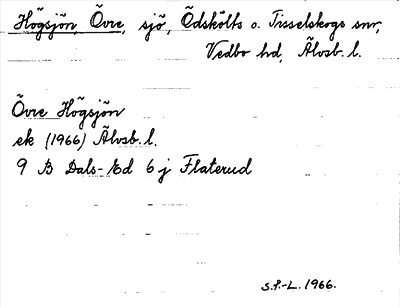 Högsjön, Övre, sjö, Ödskölts o. Tisselskogs snr,
Vedbo hd, Älvsb. l.
Övre Högsjön
ek (1966) Älvsb. l.
9 B Dals-Ed 6 j Flaterud
S.P.-L. 1966.